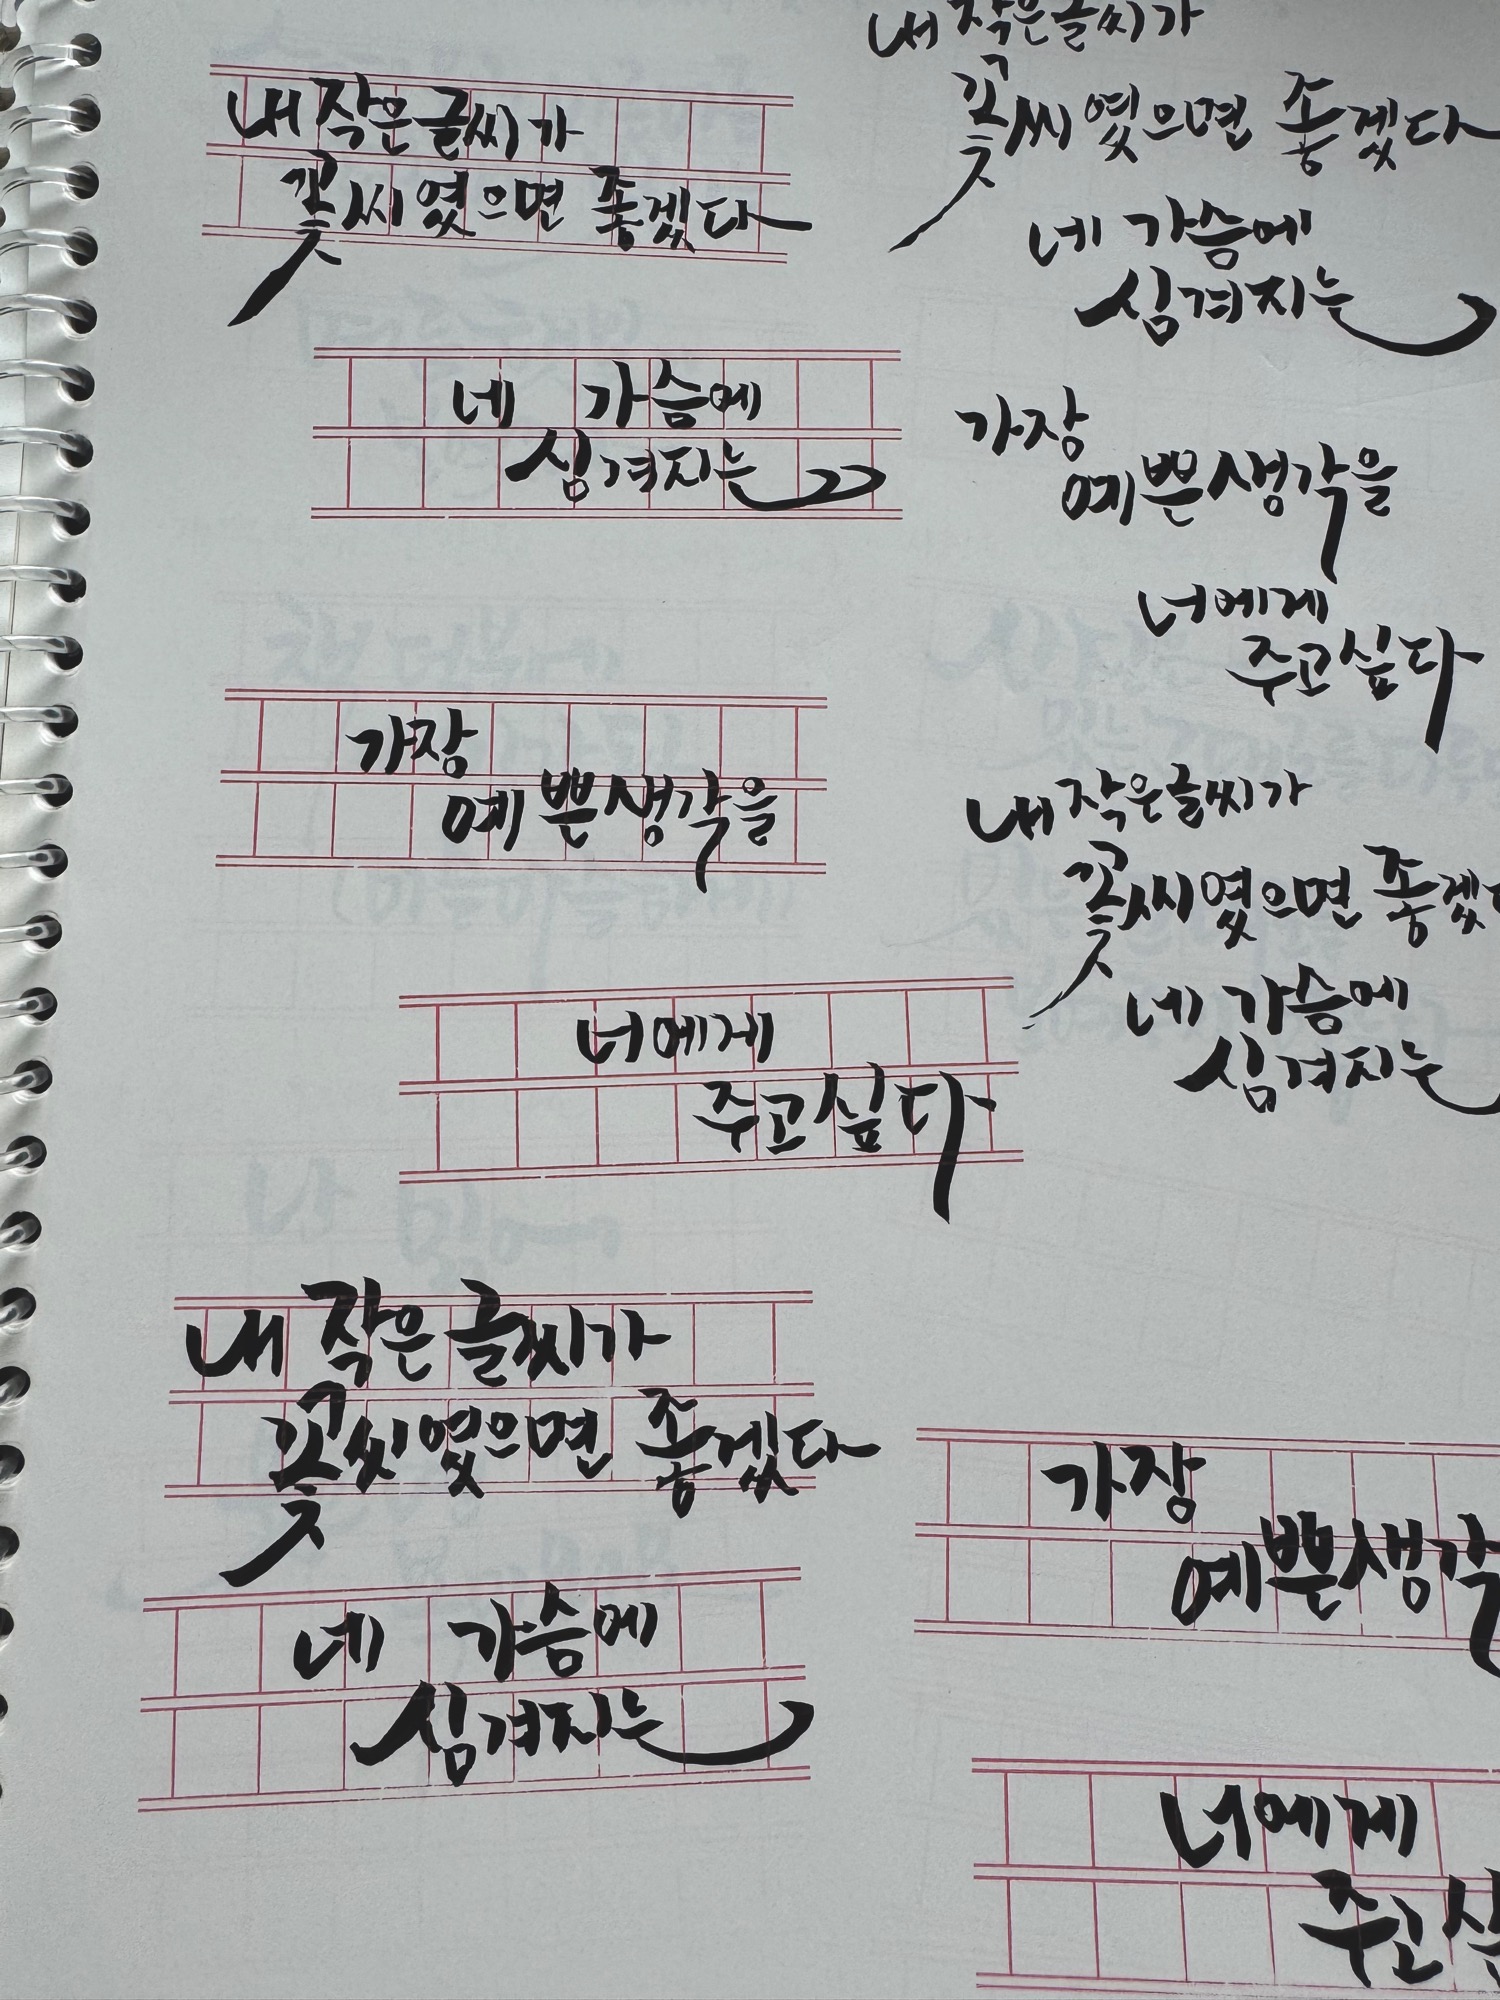 내 작은 글씨가
꽃씨였으면 좋겠다
네 가슴에
심겨지는
가장
예쁜 생각을
너에게
주고싶다
내 작은 글씨가
꽃씨였으면 좋겠다
네 가슴에
심겨지는
내 작은 글씨가
꽃씨였으면 좋겠다
네 가슴에
심겨지는
가장
예쁜 생각을
너에게
주고싶다
내 작은 글씨가
꽃씨였으면 좋겠
네 가슴에
심겨지는
가장
예쁜 생각
너에게
주고